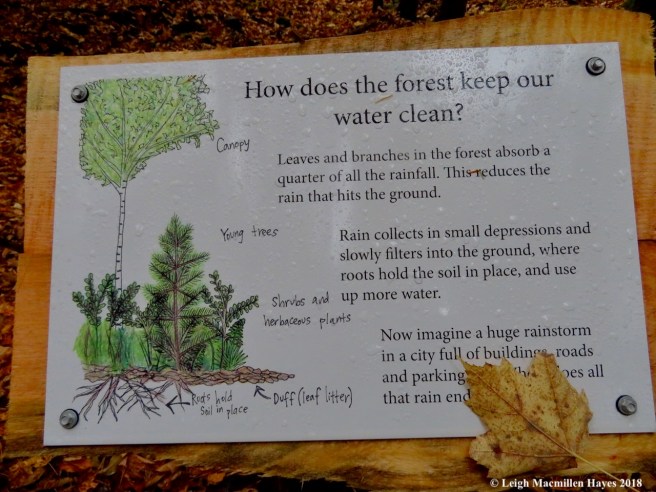 How does the forest keep our
water clean?
Canopy
Leaves and branches in the forest absorb a
quarter of all the rainfall. This reduces the
rain that hits the ground.
Young trees
Rain collects in small depressions and
slowly filters into the ground, where
roots hold the soil in place, and use
up more water.
Shrubs and
herbaceous plants
Now imagine a huge rainstorm
in a city full of buildings, roads
and parking does all
that rain end
Roots hold
Soil in place
Duff (leaf litter)
© Leigh Macmillen Hayes 2018